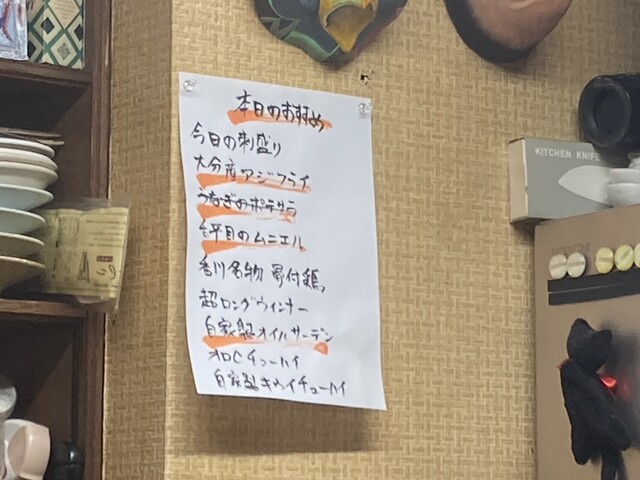 本日のおすすめ
今日の刺盛り
大分産アジフライ
うなぎのポテサラ
平目のムニエル
香川名物 骨付鶏
超ロングウィンナー
自家製オイルサーデン
オロCチューハイ
自家製キウイチューハイ
KITCHEN KNIFE
HITACHI